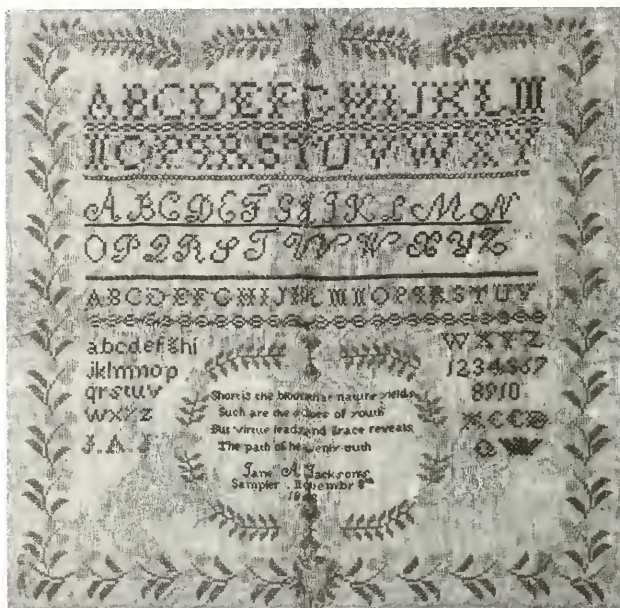 ABCDEFGHIJKLM
NOPQRSTUVWXY
ABCDEFGHIJKLMN
OPQRSTUVWXYZ
ABCDEFGHIJKLMNOPQRSTUV
abcdefghi
jklmnop
qrstuv
wxyz
J.A.J
WXYZ
1234567
8910
Short is the bloom that nature yields
Such are the of youth
But virtue leads and Grace reveals
The path of heavenly truth
Jane A Jacksons
Sampler Novembr 8th